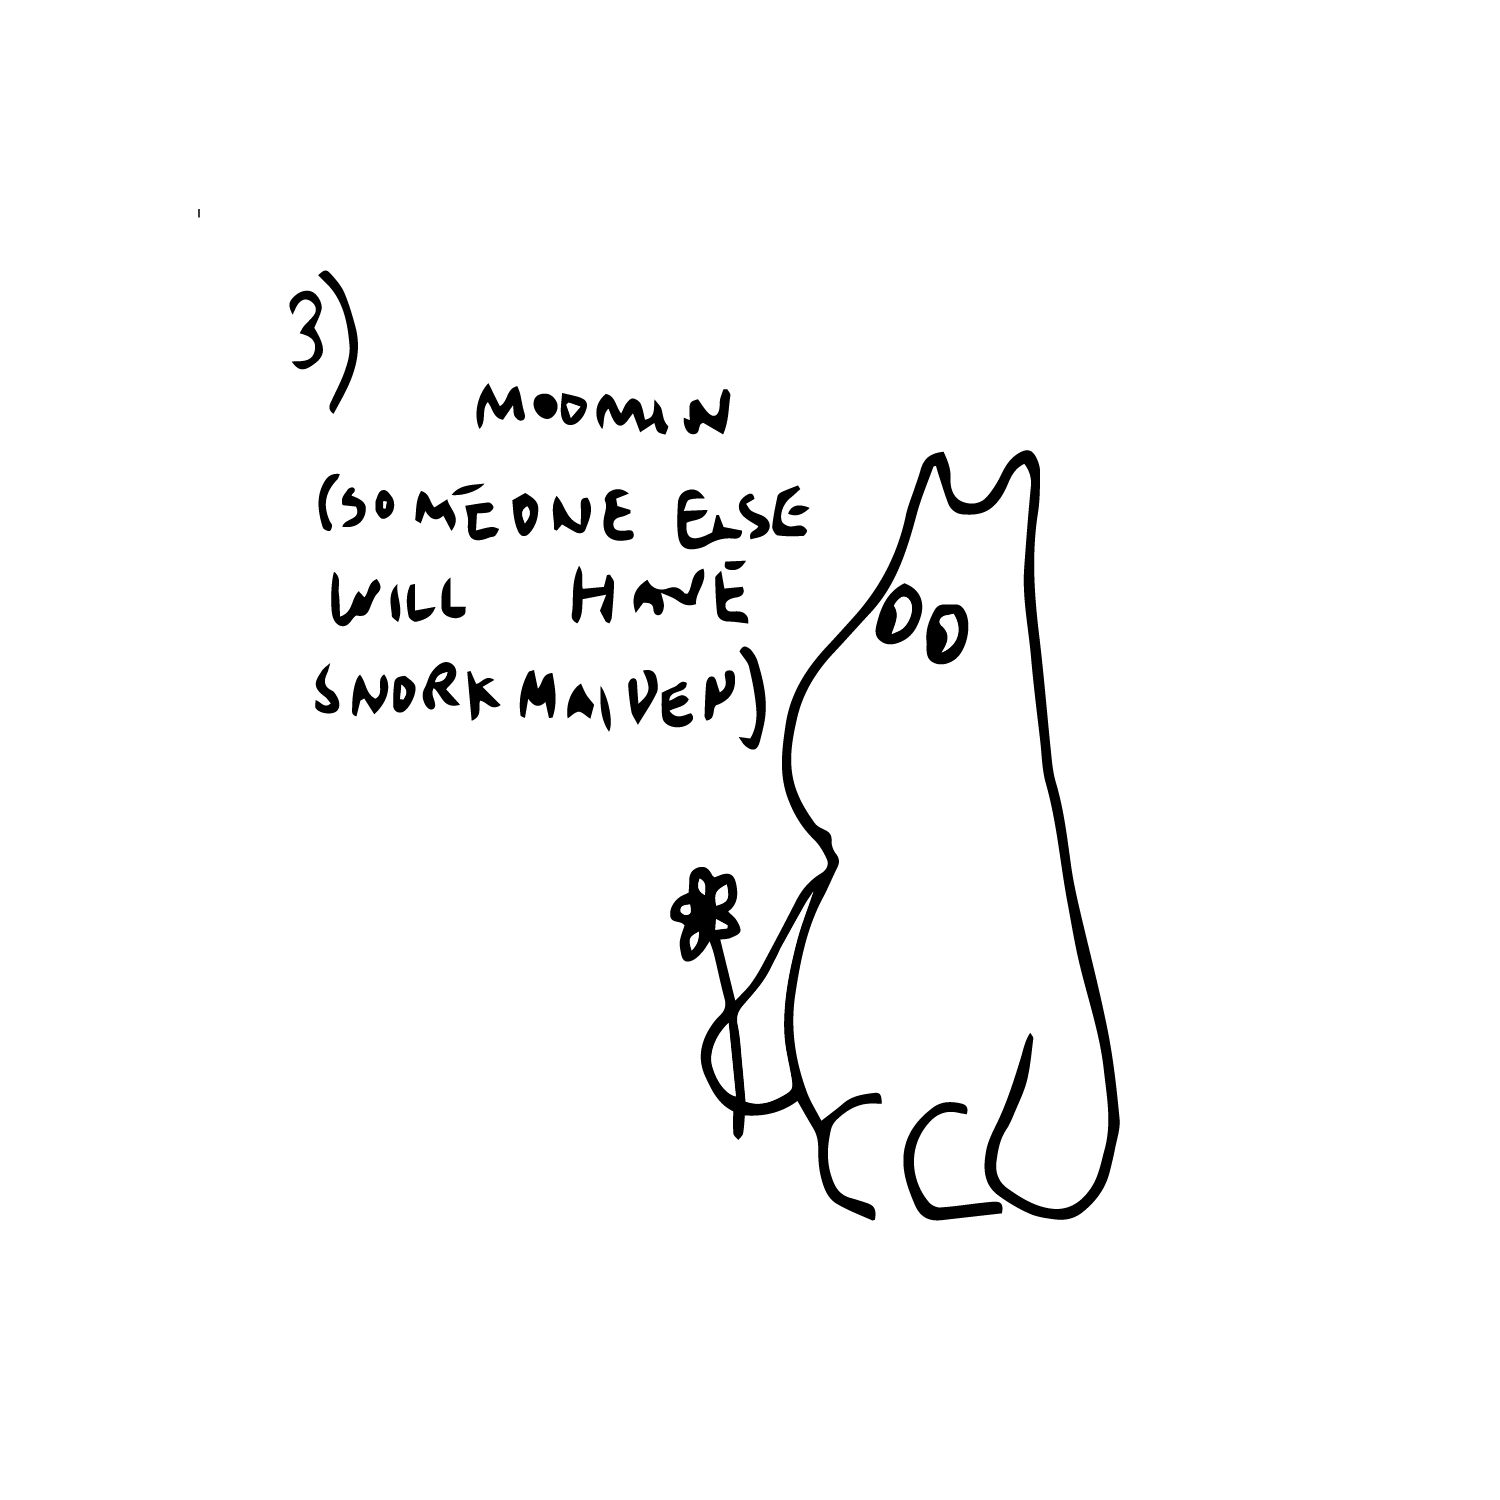 3)
MOOMIN
(SOMEONE ELSE
WILL HAVE
SNORKMAIDEN)